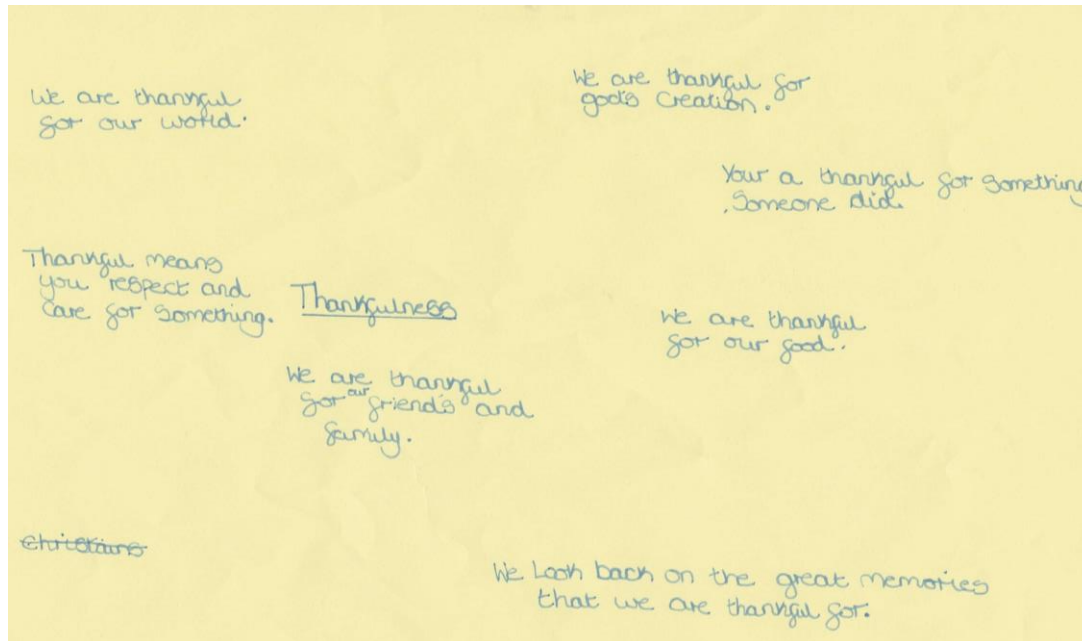 We are thankful
for our world.
We are thankful for
god's creation.
Your a thankful for something
, Someone did.
Thankful means
you respect and
care for something.
Thankfulness
We are thankful
for our food.
We are thankful
for our friend's and
family.
Christains
We Look back on the great memories
that we are thankful for.